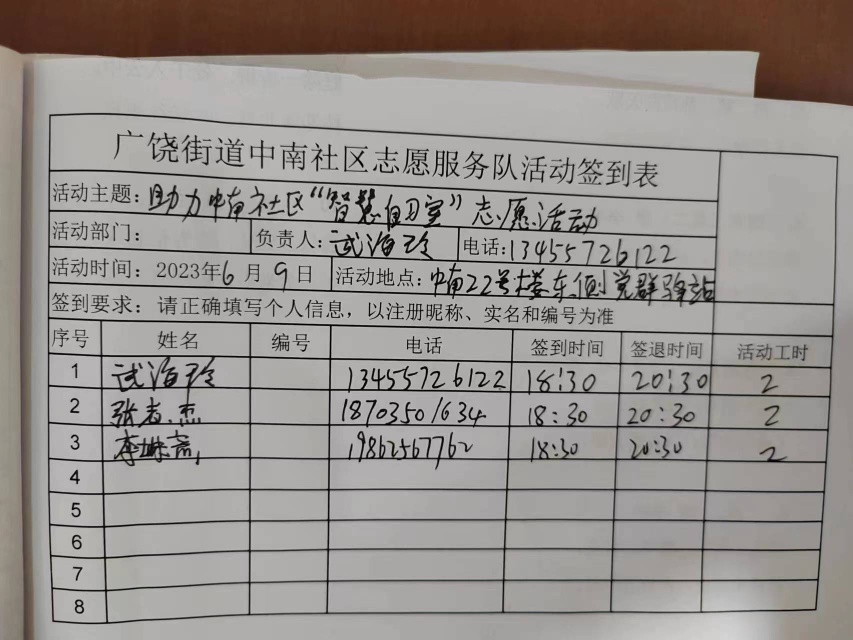 广饶街道中南社区志愿服务队活动签到表
活动主题：助力中南社区“智慧自习室”志愿活动
活动部门： 负责人：武海玲 电话：13455726122
活动时间：2023年6月9日 活动地点：中南22号楼东侧党群驿站
签到要求：请正确填写个人信息，以注册昵称、实名和编号为准
序号 姓名 编号 电话 签到时间 签退时间 活动工时
1 武海玲 13455726122 18:30 20:30 2
2 张志杰 18703501634 18:30 20:30 2
3 19862567762 18:30 20:30 2
4
5
6
7
8